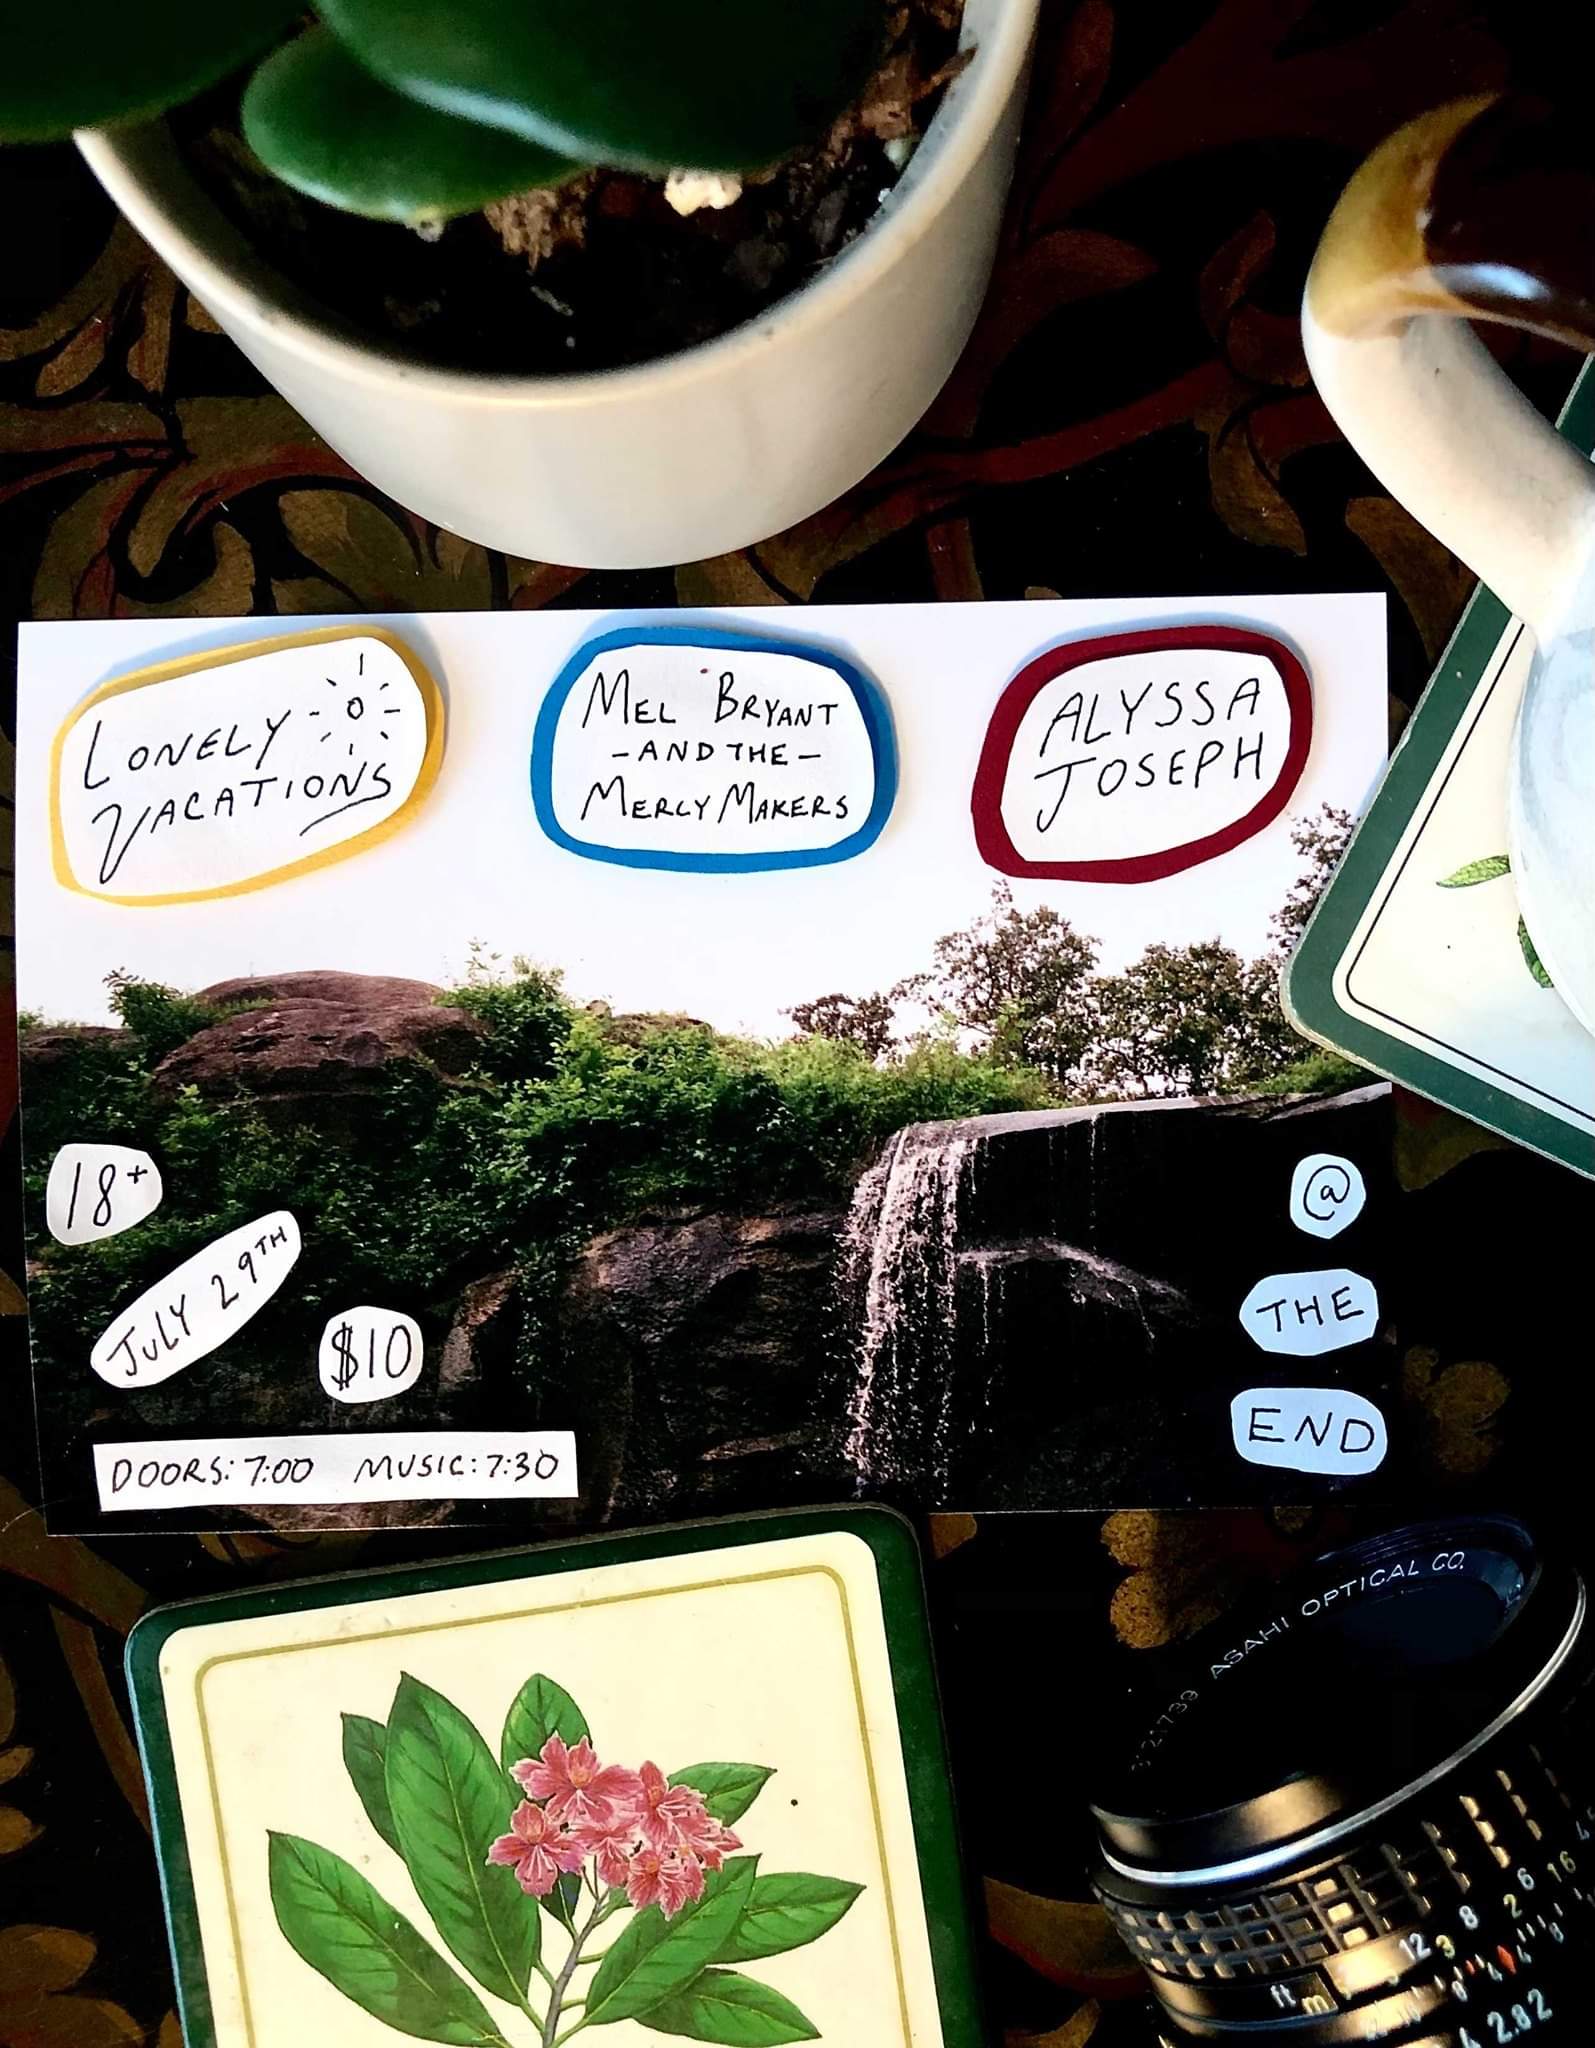 LONELY
VACATIONS
MEL BRYANT
-AND THE-
MERCY MAKERS
ALYSSA
JOSEPH
18+
JULY 29TH
$10
DOORS: 7:00 MUSIC: 7:30
@
THE
END
ASAHI OPTICAL CO.
6 16
12 3 8 2
ft m
2.82